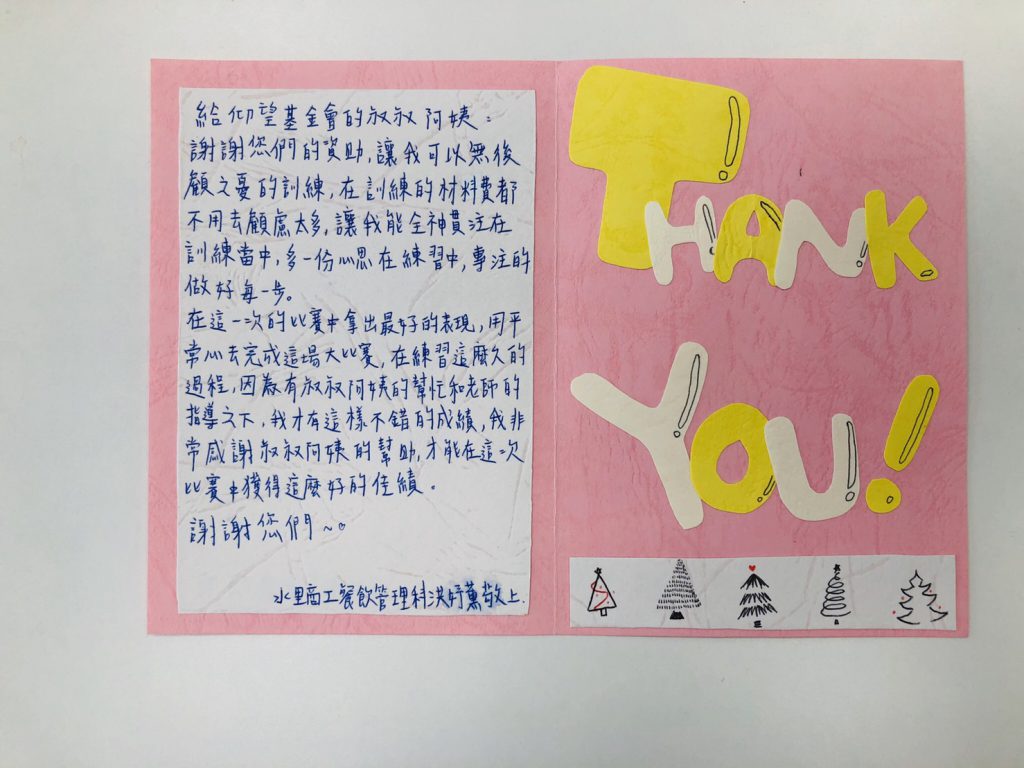 給仰望基金會的叔叔阿姨：
謝謝您們的資助，讓我可以無後
顧之憂的訓練，在訓練的材料費都
不用去顧慮太多，讓我能全神貫注在
訓練當中，多一份心思在練習中，專注的
做好每一步。
在這一次的比賽中拿出最好的表現，用平
常心去完成這場大比賽，在練習這麼久的
過程，因為有叔叔阿姨的幫忙和老師的
指導之下，我才有這樣不錯的成績，我非
常感謝叔叔阿姨的幫助，才能在這一次
比賽中獲得這麼好的佳績。
謝謝您們～。
水里商工餐飲管理科洪妤薰敬上.
THANK
YOU!